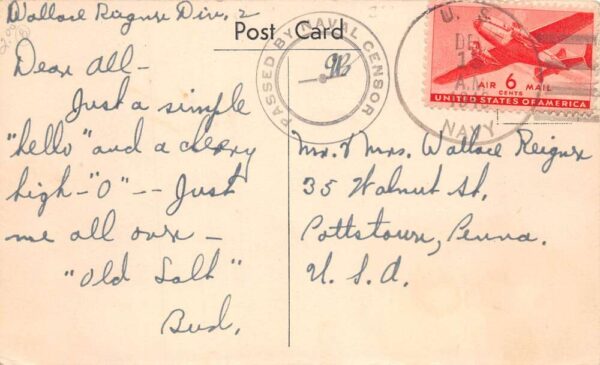 Wallace Reigner Div. 2
Post Card
Dear all—
Just a simple
"hello" and a cheery
high-"O" -- Just
me all over —
"Old Salt"
Bud.
PASSED BY NAVAL CENSOR
U. S.
DE
A.M.
NAVY
AIR 6 MAIL
CENTS
UNITED STATES OF AMERICA
Mr. & Mrs. Wallace Reigner
35 Walnut St.
Pottstown, Penna.
U. S. A.